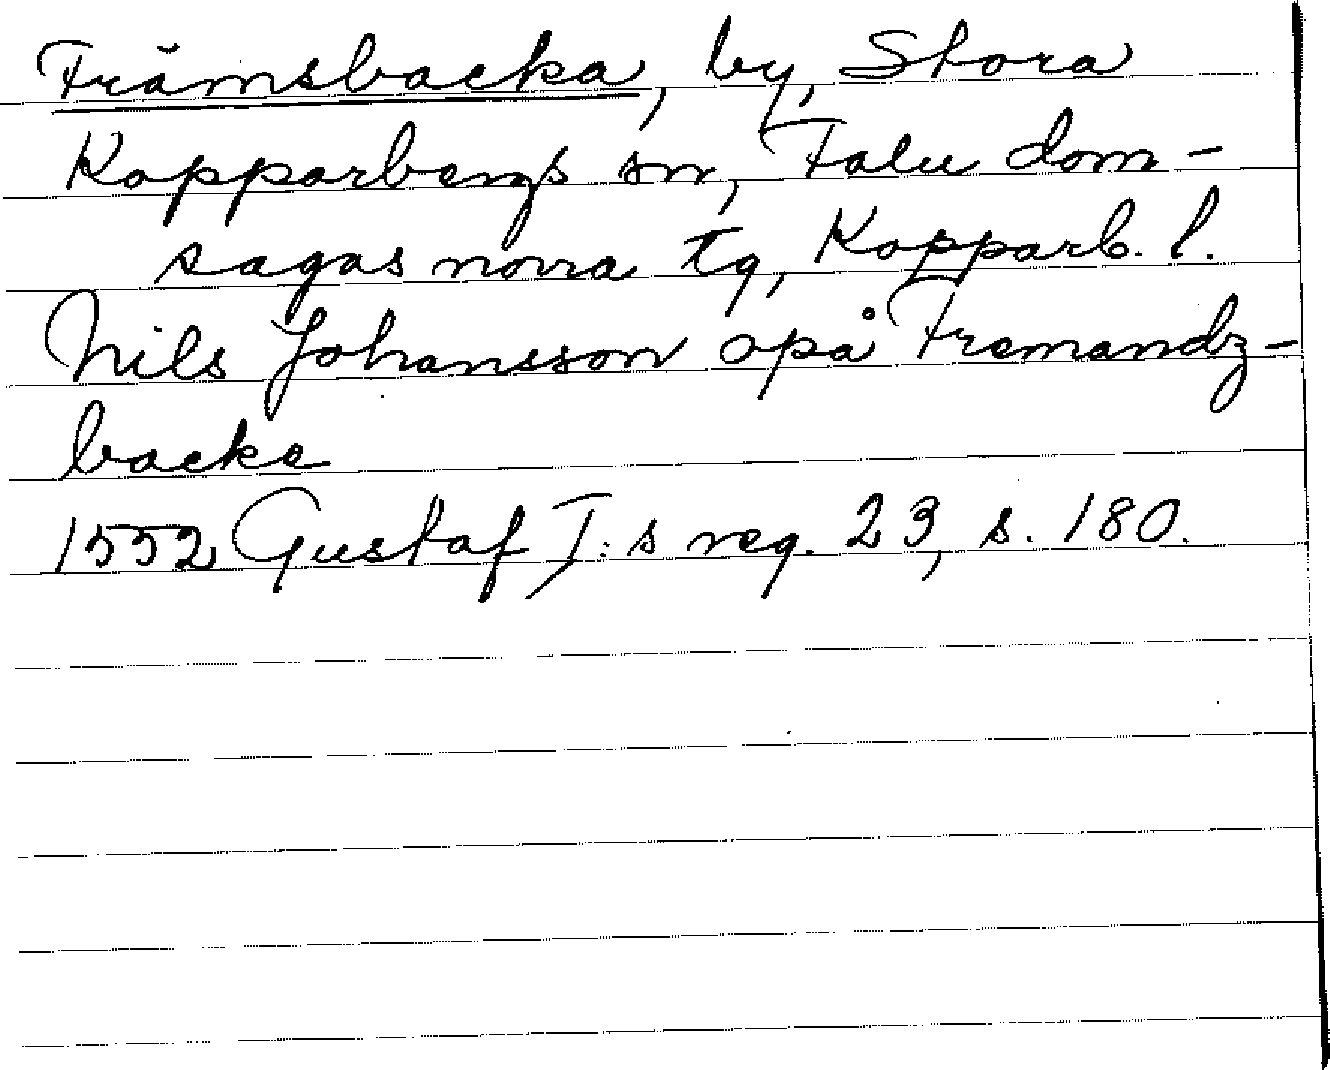 Främsbacka, by, Stora
Kopparbergs sn, Falu dom-
sagas norra tg, Kopparb. l.
Nils Johansson opå Fremandz-
backe
1552 Gustaf I:s reg. 23, s. 180.